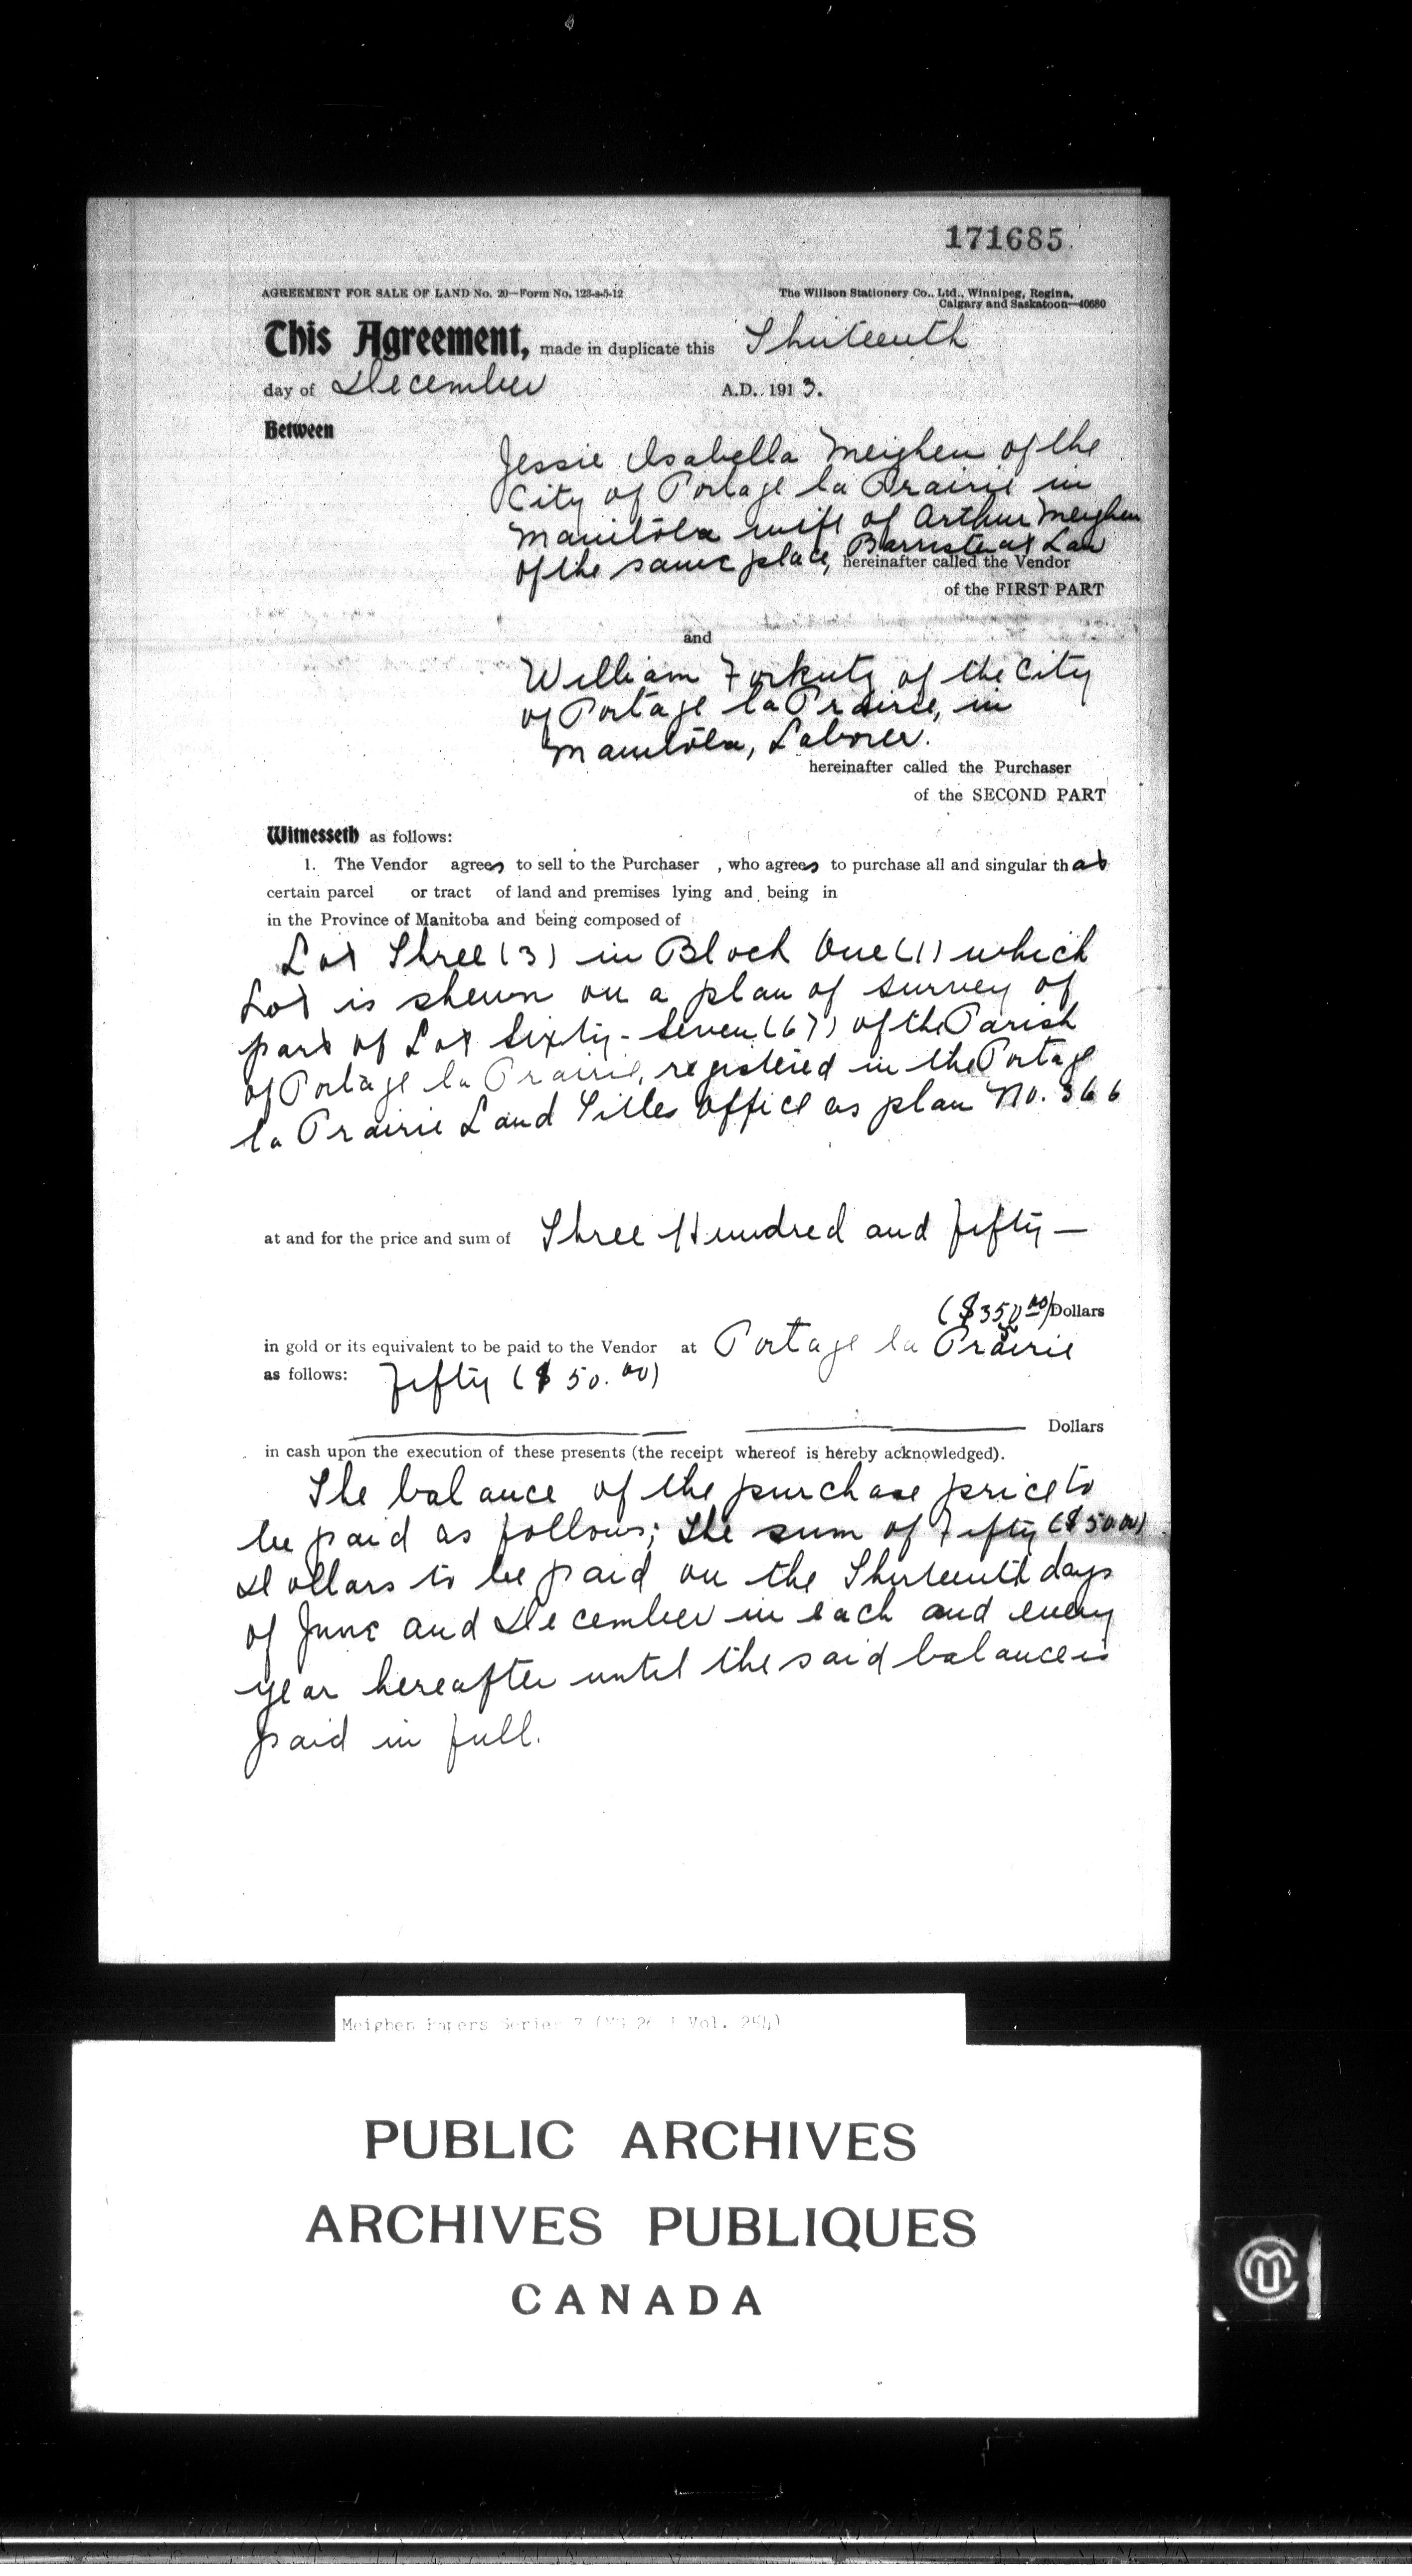 171685
AGREEMENT FOR SALE OF LAND No. 20—Form No. 123-s-5-12
The Willson Stationery Co., Ltd., Winnipeg, Regina,
Calgary and Saskatoon—40680
This Agreement, made in duplicate this Thirteenth
day of December A.D. 1913.
Between
Jessie Isabella Meighen of the
City of Portage la Prairie in
Manitoba wife of Arthur Meighen
of the same place, Barrister at Law
hereinafter called the Vendor
of the FIRST PART
and
William Forkuty of the City
of Portage la Prairie, in
Manitoba, Laborer.
hereinafter called the Purchaser
of the SECOND PART
Witnesseth as follows:
1. The Vendor agrees to sell to the Purchaser , who agrees to purchase all and singular that
certain parcel or tract of land and premises lying and being in
in the Province of Manitoba and being composed of
Lot Three (3) in Block One (1) which
Lot is shewn on a plan of survey of
part of Lot Sixty-Seven (67) of the Parish
of Portage la Prairie, registered in the Portage
la Prairie Land Titles Office as plan No. 366
at and for the price and sum of Three Hundred and Fifty—
($350.00) Dollars
in gold or its equivalent to be paid to the Vendor at Portage la Prairie
as follows: Fifty ($50.00)
Dollars
in cash upon the execution of these presents (the receipt whereof is hereby acknowledged).
The balance of the purchase price to
be paid as follows; The sum of Fifty ($50.00)
Dollars to be paid on the Thirteenth days
of June and December in each and every
year hereafter until the said balance is
paid in full.
Meighen Papers Series 7 (MG 26 I Vol. 254)
PUBLIC ARCHIVES
ARCHIVES PUBLIQUES
CANADA